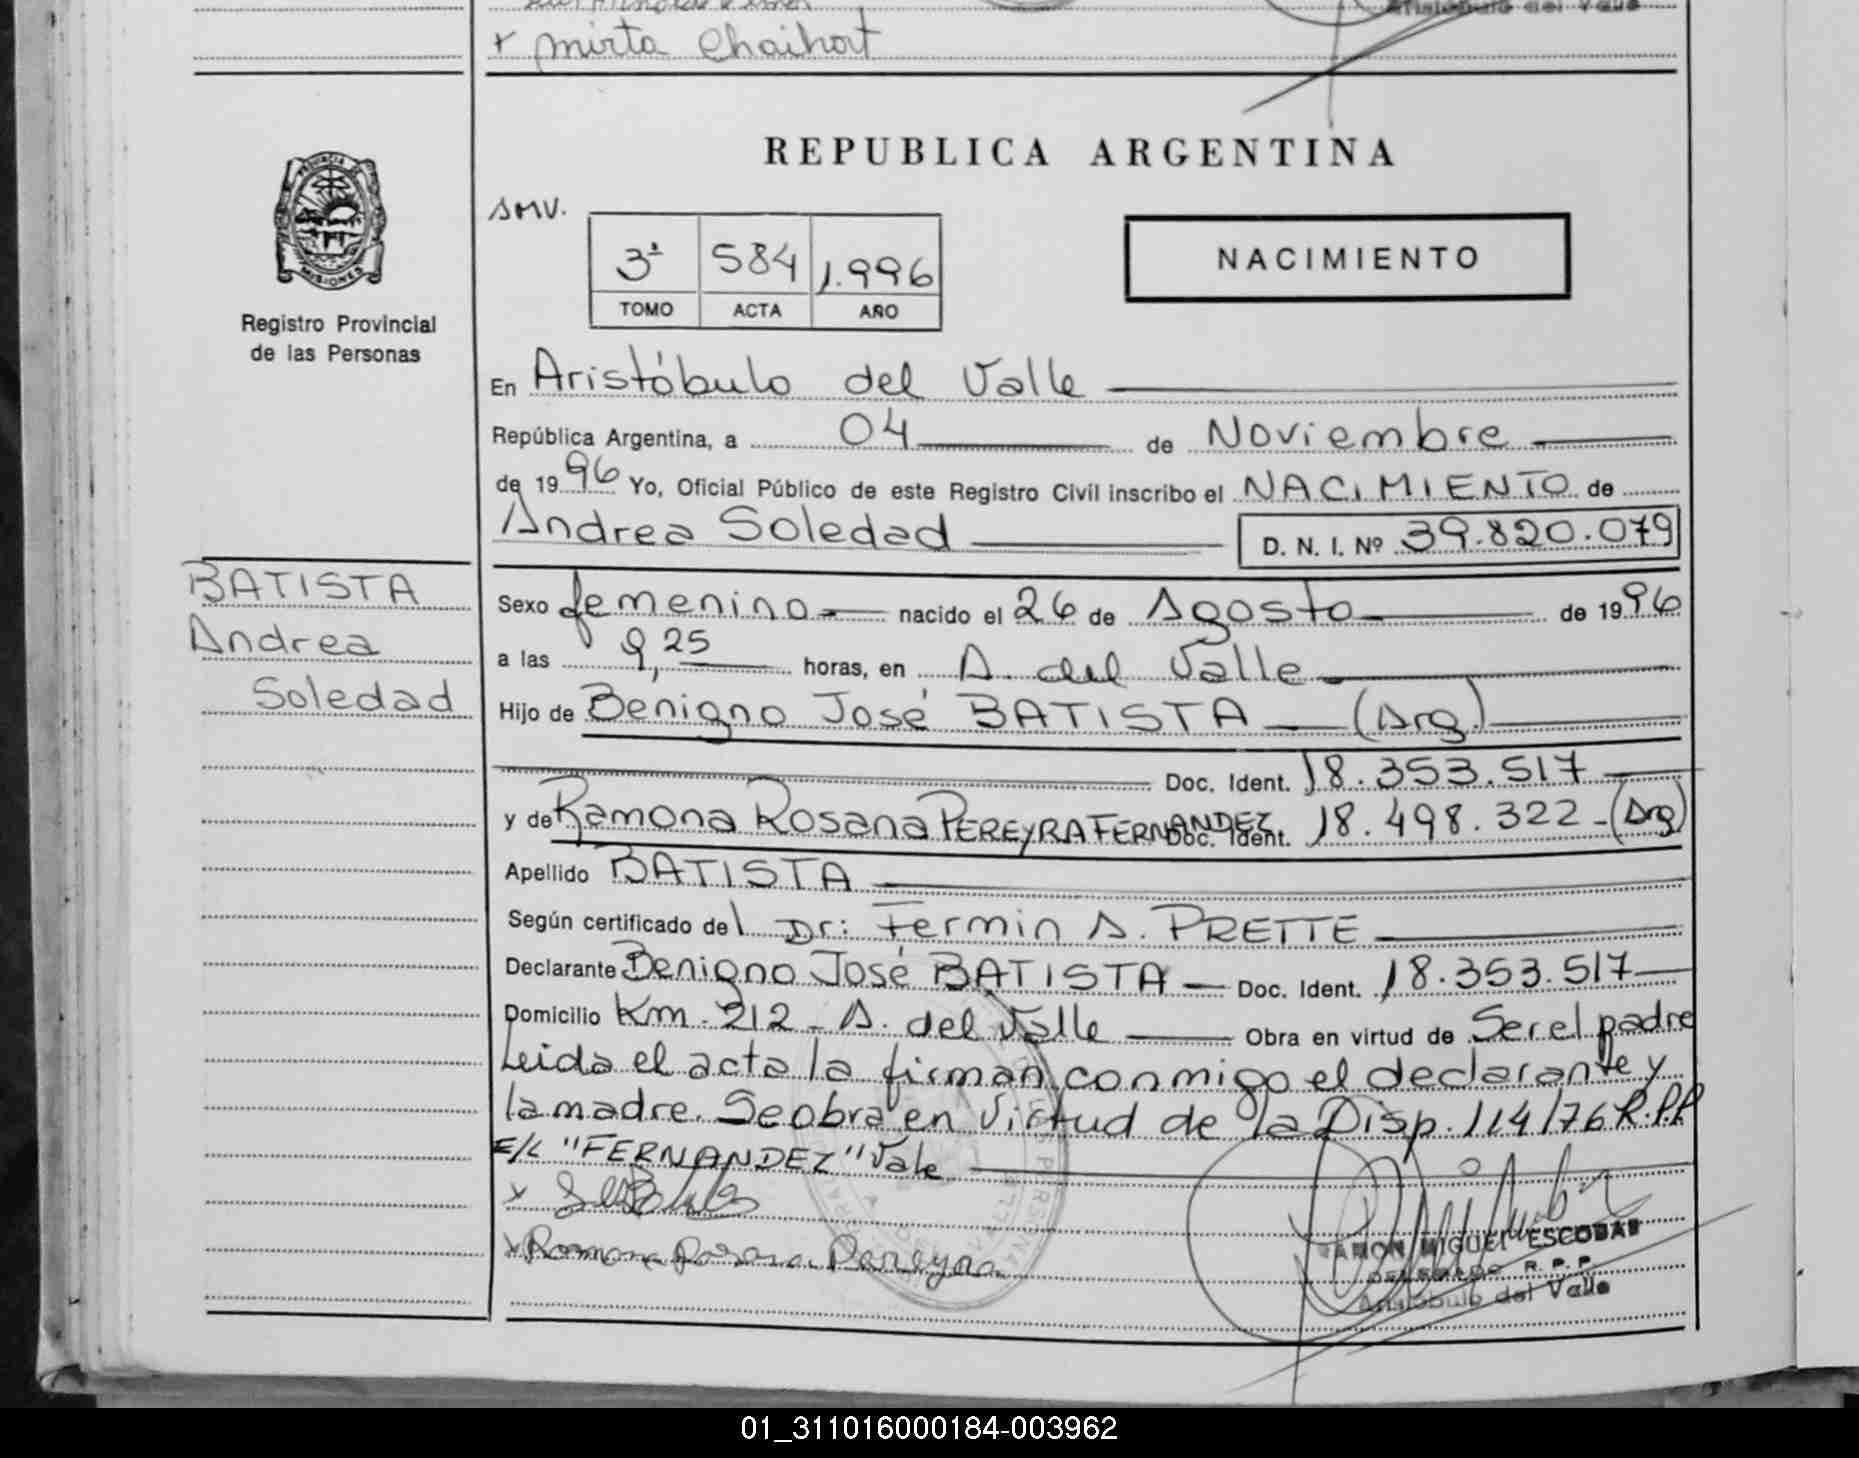 + Mirta Chaihort
Aristóbulo del Valle
REPUBLICA ARGENTINA
PROVINCIA DE
MISIONES
Registro Provincial
de las Personas
SMV.
3ª 584 1.996
TOMO ACTA AÑO
NACIMIENTO
En Aristóbulo del Valle
República Argentina, a 04 de Noviembre
de 1996 Yo, Oficial Público de este Registro Civil inscribo el NACIMIENTO de
Andrea Soledad D. N. I. Nº 39.820.079
BATISTA
Andrea
Soledad
Sexo femenino nacido el 26 de Agosto de 1996
a las 9,25 horas, en A. del Valle
Hijo de Benigno José BATISTA (Arg.)
Doc. Ident. 18.353.517
y de Ramona Rosana PEREYRA FERNANDEZ Doc. Ident. 18.498.322 - (Arg)
Apellido BATISTA
Según certificado del Dr: Fermin A. PRETTE
Declarante Benigno José BATISTA Doc. Ident. 18.353.517
Domicilio Km. 212 - A. del Valle Obra en virtud de Ser el padre
Leida el acta la firman conmigo el declarante y
la madre. Se obra en Virtud de la Disp. 114/76 R.P.P
E/L "FERNANDEZ" Vale
x
x Ramona Rosana Pereyra
RAMON MIGUEL ESCOBAR
DELEGADO R. P. P.
Aristóbulo del Valle
01_311016000184-003962